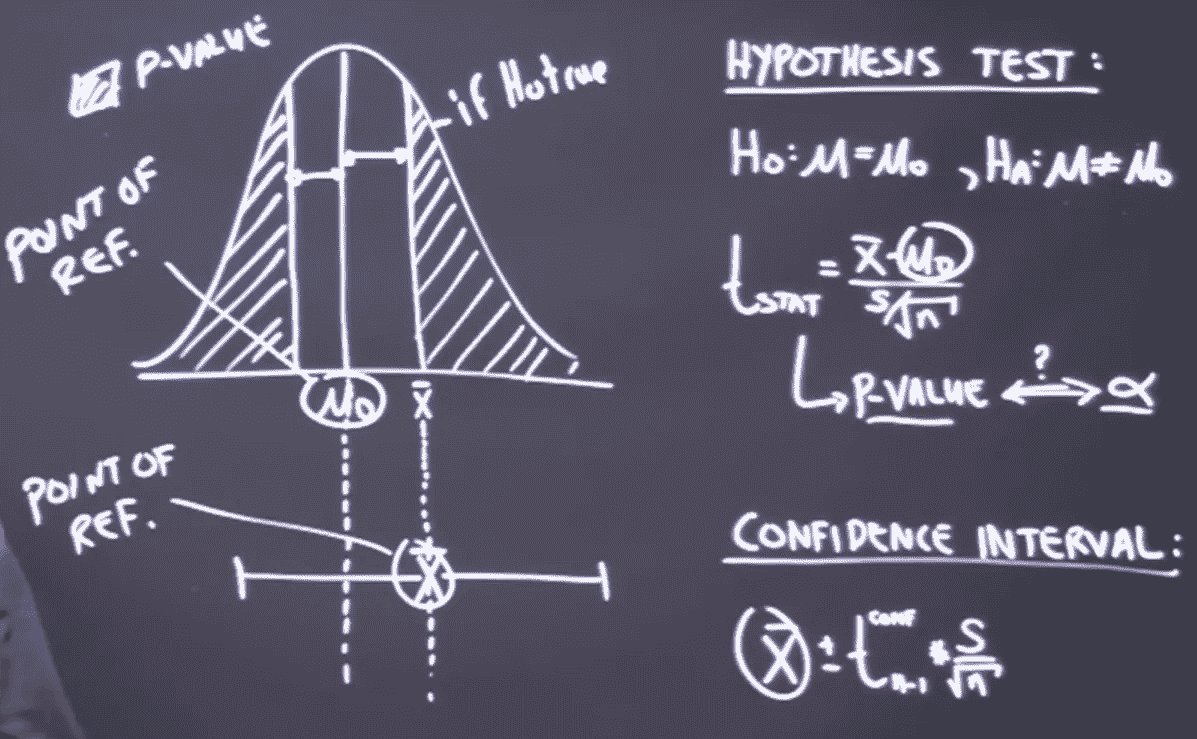 P-VALUE
if H0 true
POINT OF
REF.
μ0
x̄
POINT OF
REF.
x̄
HYPOTHESIS TEST:
H0: μ=μ0, HA: μ≠μ0
tSTAT = x̄-μ0 / s/√n
P-VALUE ⟷ ? α
CONFIDENCE INTERVAL:
x̄ ± t conf n-1 * s/√n